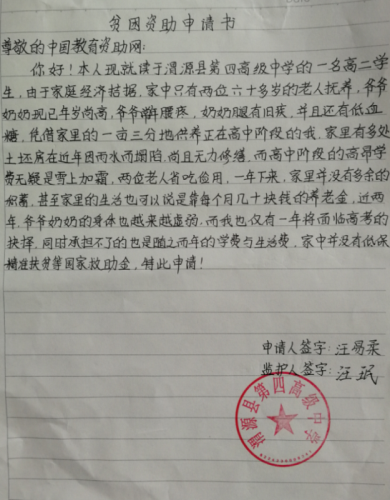 贫困资助申请书
尊敬的中国教育资助网:
你好!本人现就读于渭源县第四高级中学的一名高二学
生,由于家庭经济拮据,家中只有两位六十多岁的老人抚养,爷爷
奶奶现已年岁尚高,爷爷腰疼,奶奶腿有旧疾,并且还有低血
糖,凭借家里的一亩三分地供养正在高中阶段的我,家里有多处
土坯房在近年因雨水而塌陷,尚且无力修缮,而高中阶段的高昂学
费无疑是雪上加霜,两位老人省吃俭用,一年下来,家里并没有多余的
积蓄,甚至家里的生活也可以说是靠每个月几十块钱的养老金,近两
年,爷爷奶奶的身体也越来越虚弱,而我也仅有一年将面临高考的
抉择,同时承担不了的也是随之而年的学费与生活费,家中并没有低保
精准扶贫等国家救助金,特此申请!
申请人签字:汪易柔
监护人签字:汪珉
渭源县第四高级中学